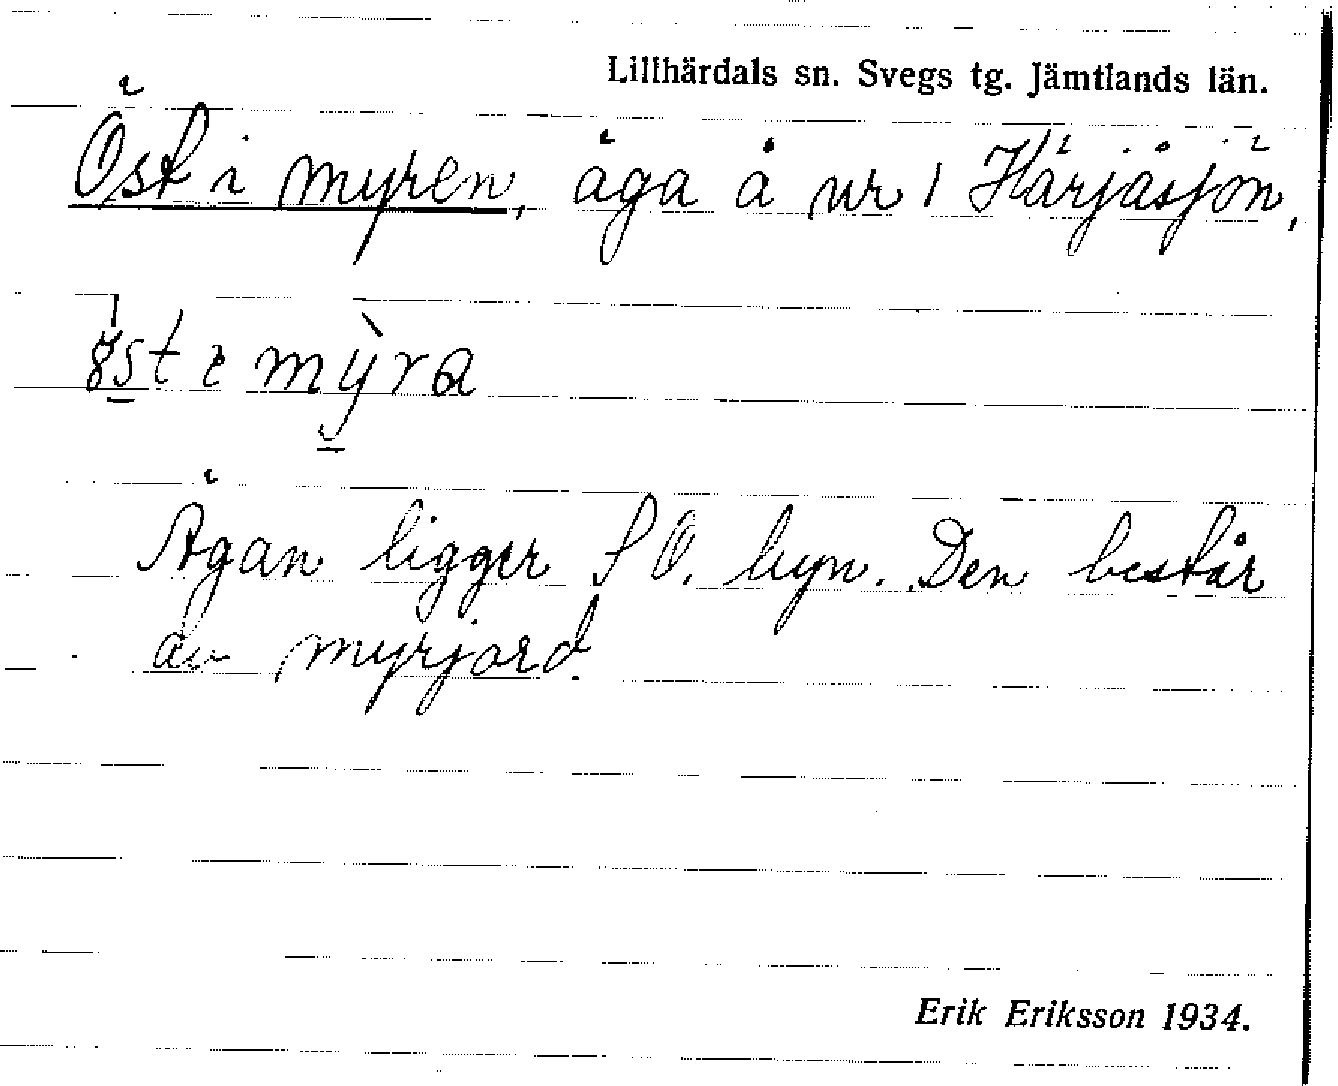 Lillhärdals sn. Svegs tg. Jämtlands län.
Öst i myren, åga å nr 1 Härjåsjön,
öst i mỳra
Ågan ligger S O. byn. Den består
av myrjord.
Erik Eriksson 1934.